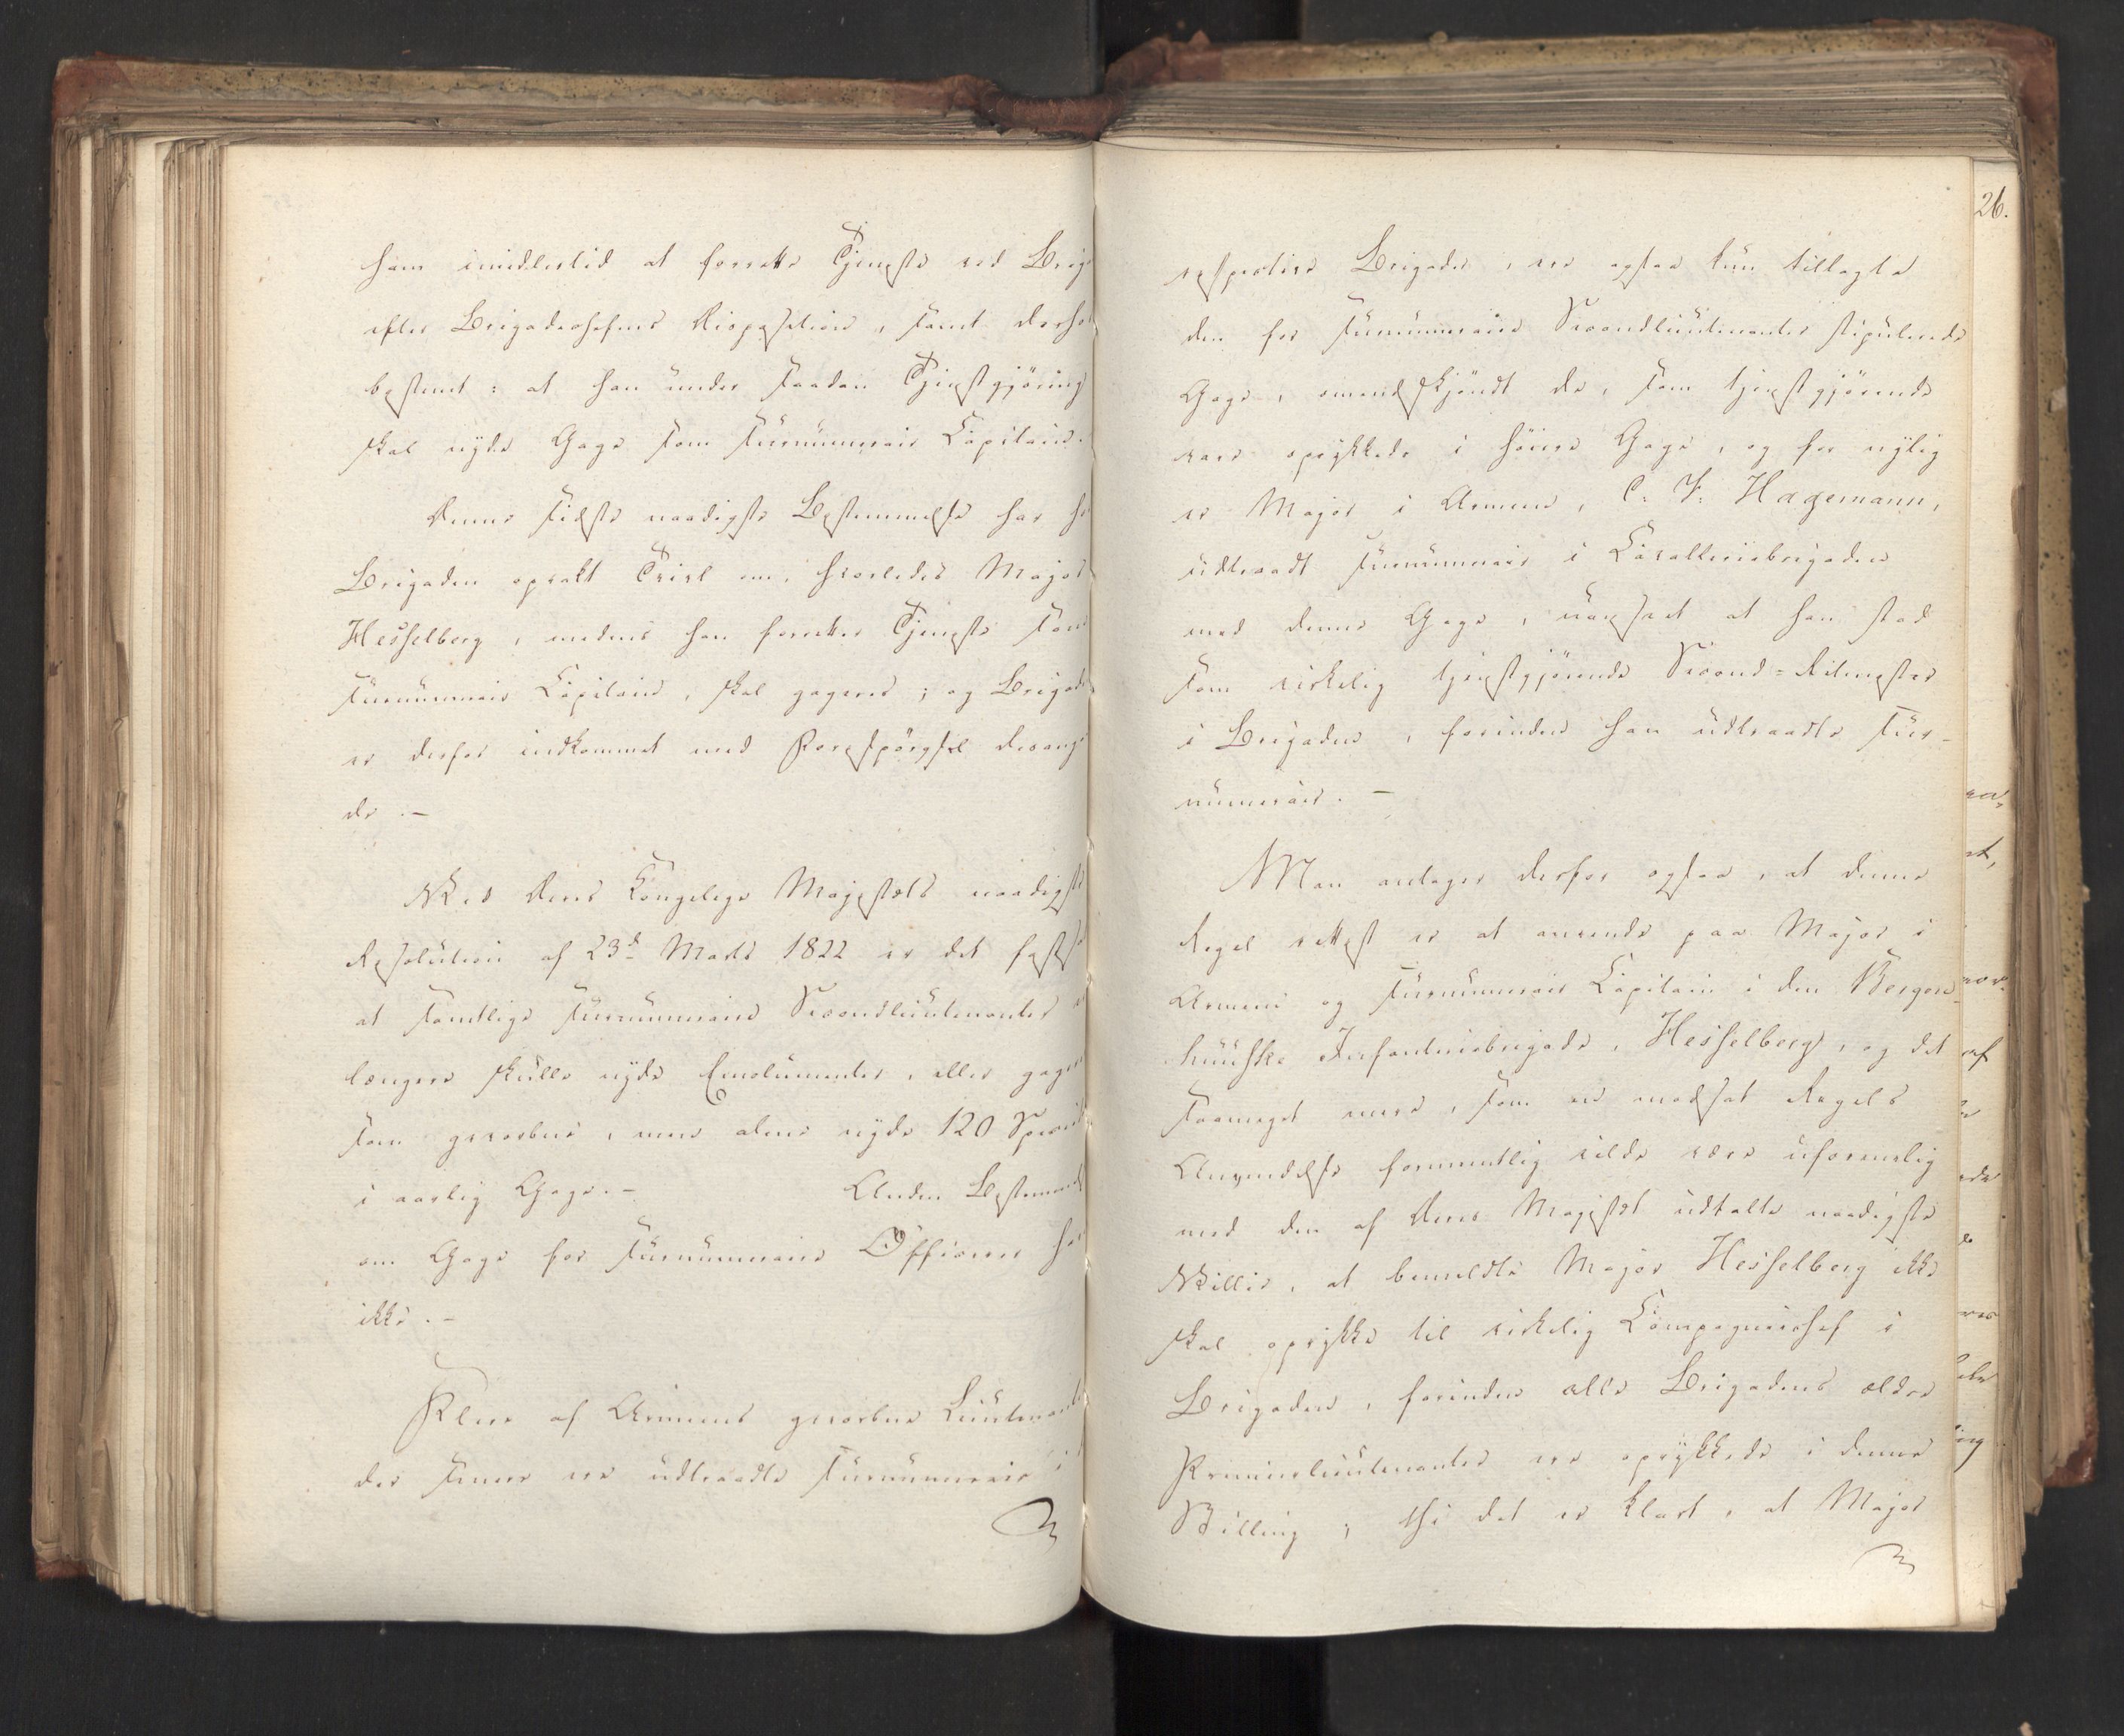 ham imidlertid at forrette Tjeneste ved Brig
efter Brigadechefens Disposition, samt derhos
bestemt: at han under saadan Tjenestgjöring
skal nyde Gage som surnumerair Capitain.
Denne sidste naadigste Bestemmelse har hos
Brigaden opvakt Tvivl om, hvorledes Major
Hesselberg, medens han forretter Tjeneste som
surnumerair Capitain, skal gageres; og Brigaden
er derfor indkommet med Forespörgsel desangaaen
de.-
Ved Deres Kongelige Majestæts naadigste
Resolution af 23d Marts 1822 er det fastsat
at samtlige surnumeraire Secondlieutenanter
længere skulle nyde Emolumenter, eller gageres
som gevorbne, men alene nyde 120 Specied
i aarlig Gage.- Anden Bestemmelse
om Gage for surnumeraire Officerer ha
ikke.-
Flere af Armeens gevorbne Lieutenante
der senere ere udtraadte surnumeraire i
26.
respective Brigader, ere ogsaa kun tillagte
den for surnumeraire Secondlieutenanter stipulerede
Gage, omendskjöndt de, som tjenestgjörende
vare oprykkede i höiere Gage, og for nylig
er Major i Armeen, C. F. Hagemann,
udtraadt surnumerair i Cavalleriebrigaden
med denne Gage, uanseet at han stod
som virkelig tjenestgjörende Second-Ritmester
i Brigaden, forinden han udtraadte sur-
numerair.-
Man antager derfor ogsaa, at denne
Regel rettest er at anvende paa Major i
Armeen og surnumerair Capitain i den Bergen-
huusske Infanteriebrigade, Hesselberg, og det
saameget mere, som en modsat Regels
Anvendelse formentlig vilde være uforenelig
med den af Deres Majestæt udtalte naadigste
Villie, at bemeldte Major Hesselberg ikke
skal oprykke til virkelig Compagniechef i
Brigaden, forinden alle Brigadens ældre
Premierlieutenanter ere oprykkede i denne
Stilling; thi det er klart, at Major